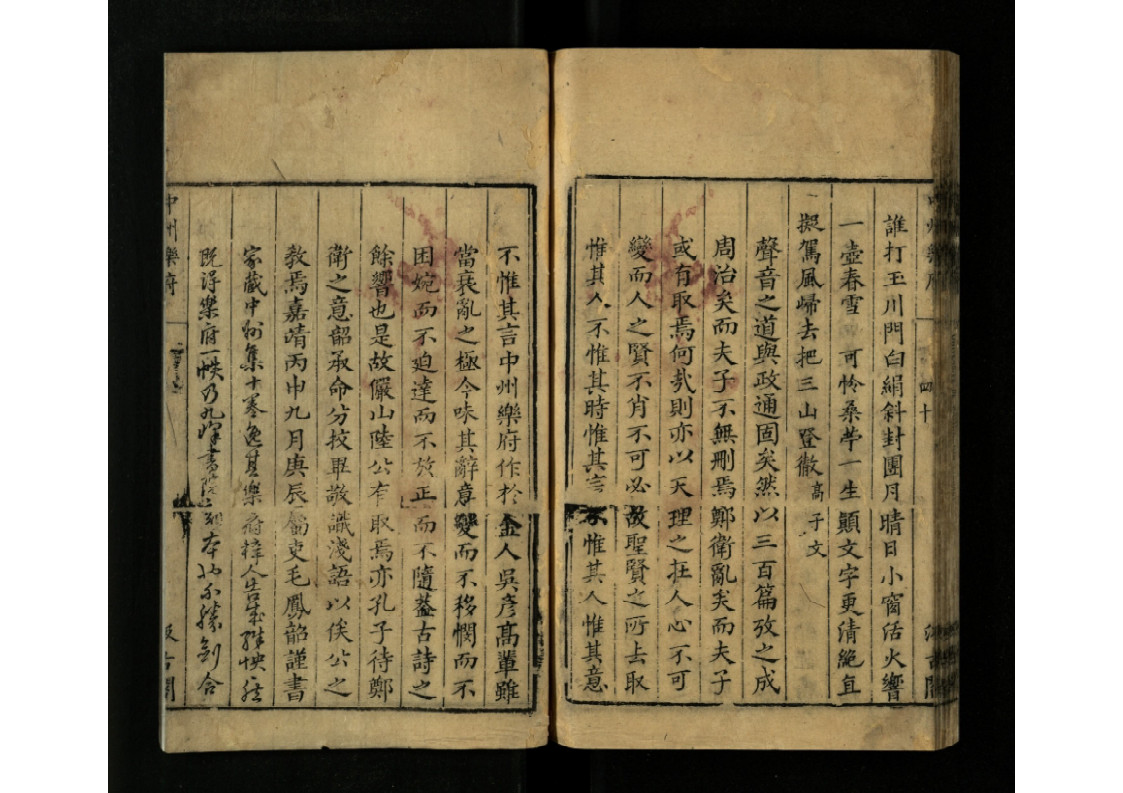 誰打玉川門白絹斜封團月晴日小窗活火響
一壺春雪　可憐桑苧一生顛文字更清絕直
擬駕風歸去把三山登徹 高子文
聲音之道與政通固矣然以三百篇攷之成
周治矣而夫子不無刪焉鄭衛亂矣而夫子
或有取焉何哉則亦以天理之在人心不可
變而人之賢不肖不可必故聖賢之所去取
惟其人不惟其時惟其言不惟其人惟其意
中州樂府
四十
不惟其言中州樂府作於金人吳彥高輩雖
當衰亂之極今味其辭意變而不移憫而不
困婉而不迫達而不放正而不隨葢古詩之
餘響也是故儼山陸公有取焉亦孔子待鄭
衛之意韶承命分挍畢敬識淺語以俟公之
教焉嘉靖丙申九月庚辰屬吏毛鳳韶謹書
家藏中州集十卷逸其樂府梓人告成殊怏
既淂樂府一帙乃九峰書院刻本也不勝劍合
中州樂府
汲古閣